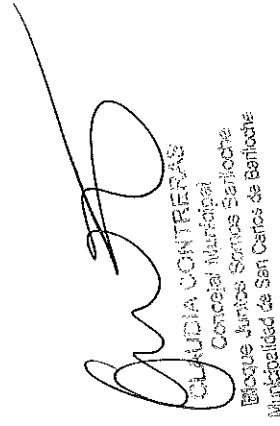 CLAUDIA CONTRERAS
Concejal Municipal
Bloque Juntos Somos Bariloche
Municipalidad de San Carlos de Bariloche